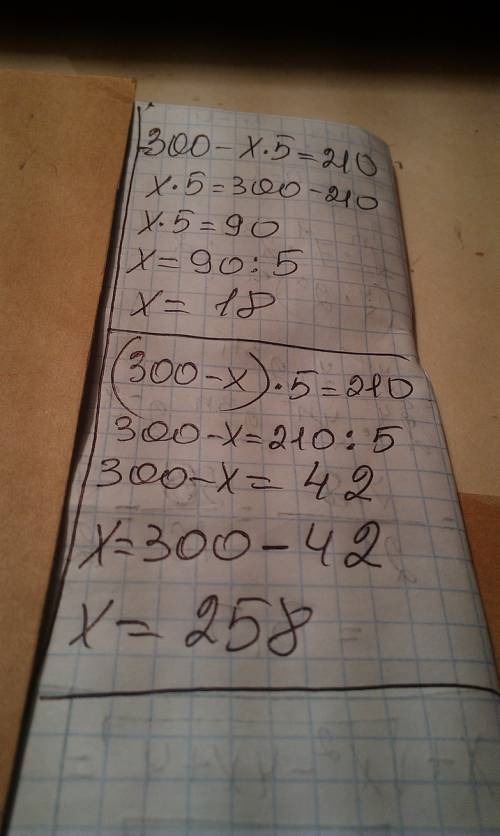 300 - x · 5 = 210
x · 5 = 300 - 210
x · 5 = 90
x = 90 : 5
x = 18
(300 - x) · 5 = 210
300 - x = 210 : 5
300 - x = 42
x = 300 - 42
x = 258